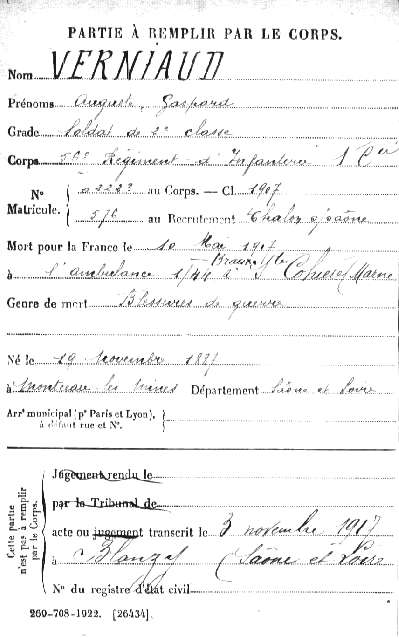 PARTIE À REMPLIR PAR LE CORPS.
Nom VERNIAUD
Prénoms Auguste, Gaspard
Grade Soldat de 2e classe
Corps 56e Régiment d'Infanterie 1 Cie
N° Matricule. 02223 au Corps. — Cl. 1907
576 au Recrutement Chalon s/ Saône
Mort pour la France le 10 Mai 1917
à l'ambulance 1/44 à Braux Ste Cohière Marne
Genre de mort Blessures de guerre
Né le 19 Novembre 1887
à Montceau les Mines Département Saône et Loire
Arrt municipal (pr Paris et Lyon),
à défaut rue et N°.
Cette partie n'est pas à remplir par le Corps.
Jugement rendu le
par le Tribunal de
acte ou jugement transcrit le 3 novembre 1917
à Blanzy (Saône et Loire
N° du registre d'état civil
260-708-1922. [26434].